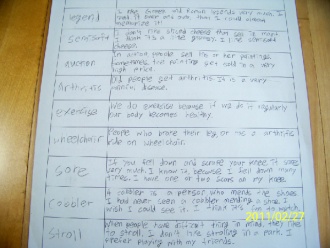 legend
I like Greek and Roman legends very much. I
read it over and over that I could almost
memorize it!
seasoned
I don't like sliced cheese that
auction
In auction people sell his or her paintings.
Sometimes the painting get sold in a very
high price.
Arthritis
Old people get arthritis. It is a very
painful disease.
exercise
We do exercise because if we do it regularly
our body becomes healthy.
wheelchair
People who broke their leg or has a arthritis
ride on wheelchair.
sore
If you fell down and scrape your knee, it sore
very much. I know it, because I fell down many
times. I have one or two scars on my knee.
cobbler
A cobbler is a person who mends the shoes
I had never seen a cobbler mending a shoe. I
wish I could see it. I think it's fun to watch.
Stroll
When people have in mind, they like
to stroll. I don't like strolling in a park. I
prefer playing with my friends.
2011/02/27